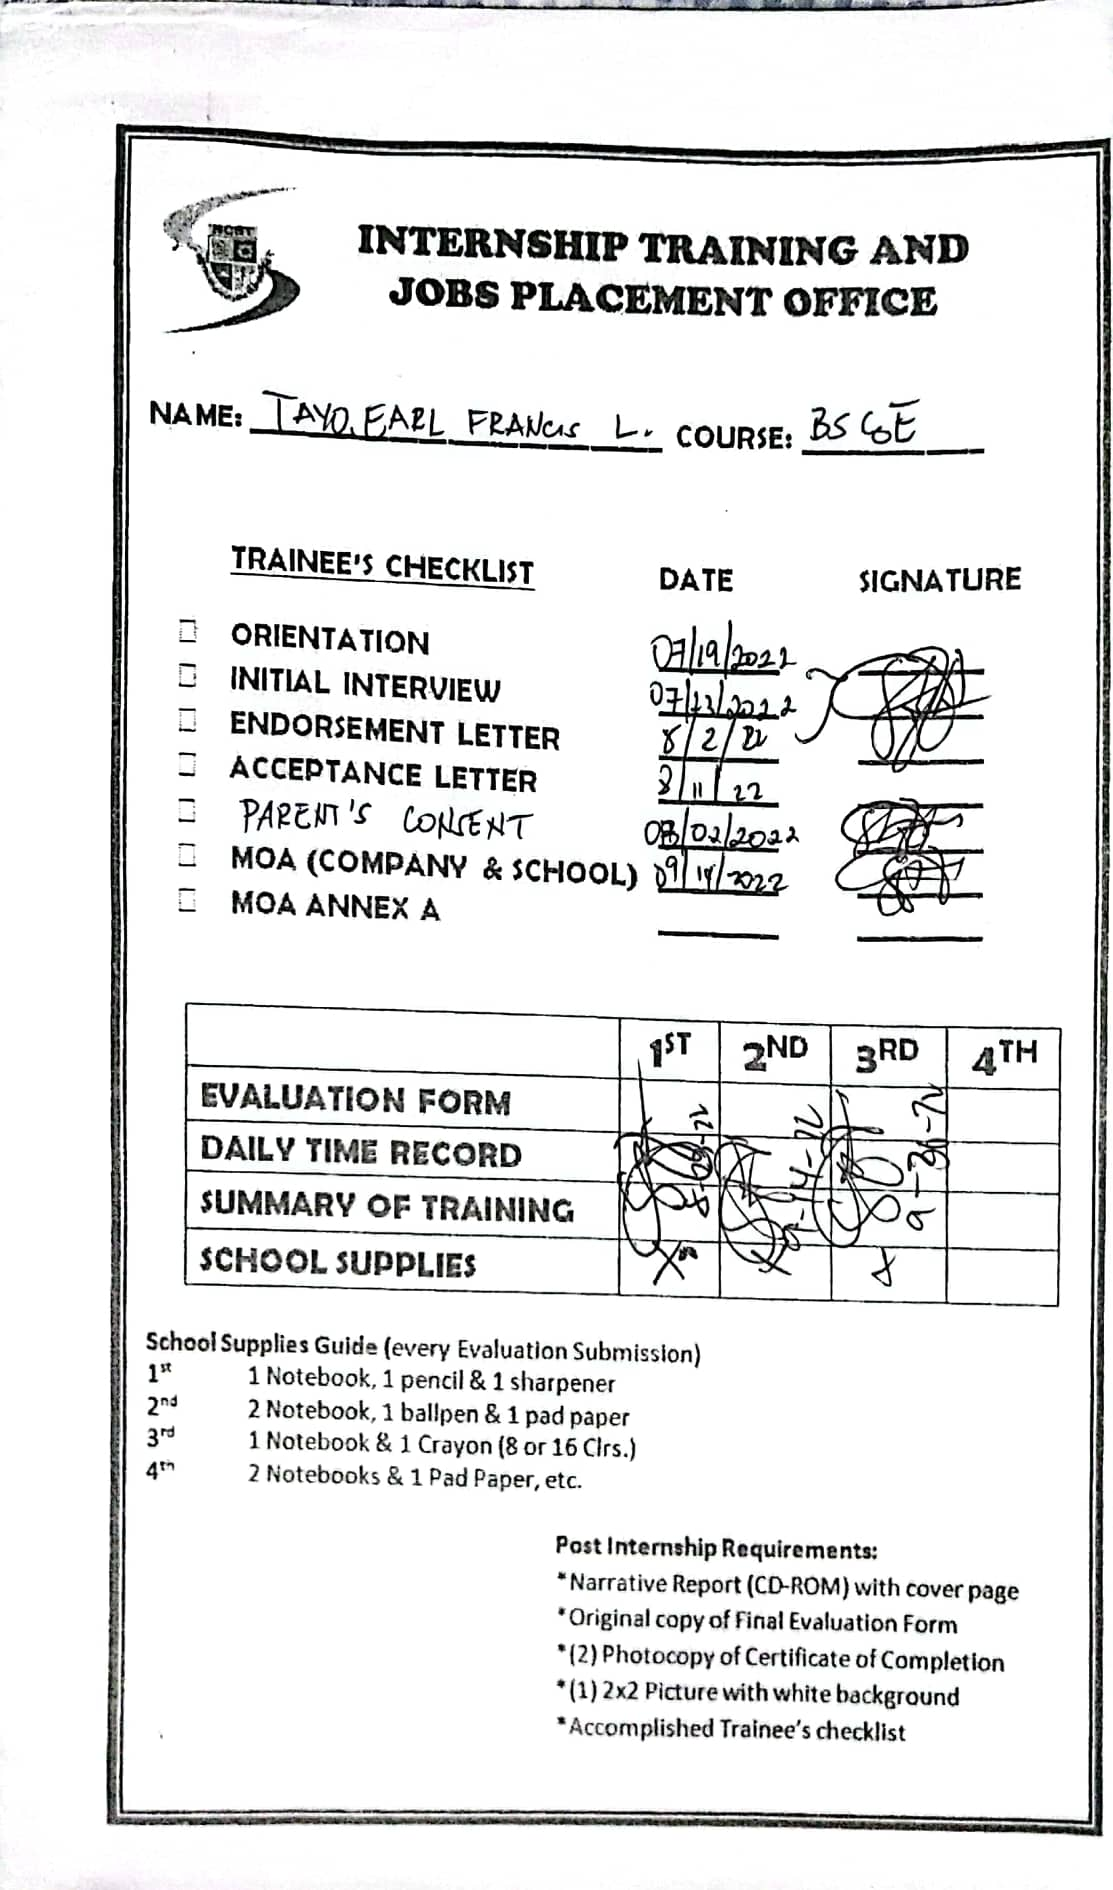 INTERNSHIP TRAINING AND
JOBS PLACEMENT OFFICE
NAME: TAYO, EARL FRANCIS L. COURSE: BS CoE
TRAINEE'S CHECKLIST DATE SIGNATURE
ORIENTATION 07/19/2022
INITIAL INTERVIEW
ENDORSEMENT LETTER 8/2/22
ACCEPTANCE LETTER 8/11/22
PARENT'S CONSENT 08/02/2022
MOA (COMPANY & SCHOOL) 09/14/2022
MOA ANNEX A
1ST 2ND 3RD 4TH
EVALUATION FORM
DAILY TIME RECORD
SUMMARY OF TRAINING
SCHOOL SUPPLIES
9-30-22
School Supplies Guide (every Evaluation Submission)
1st 1 Notebook, 1 pencil & 1 sharpener
2nd 2 Notebook, 1 ballpen & 1 pad paper
3rd 1 Notebook & 1 Crayon (8 or 16 Clrs.)
4th 2 Notebooks & 1 Pad Paper, etc.
Post Internship Requirements:
*Narrative Report (CD-ROM) with cover page
*Original copy of Final Evaluation Form
*(2) Photocopy of Certificate of Completion
*(1) 2x2 Picture with white background
*Accomplished Trainee's checklist